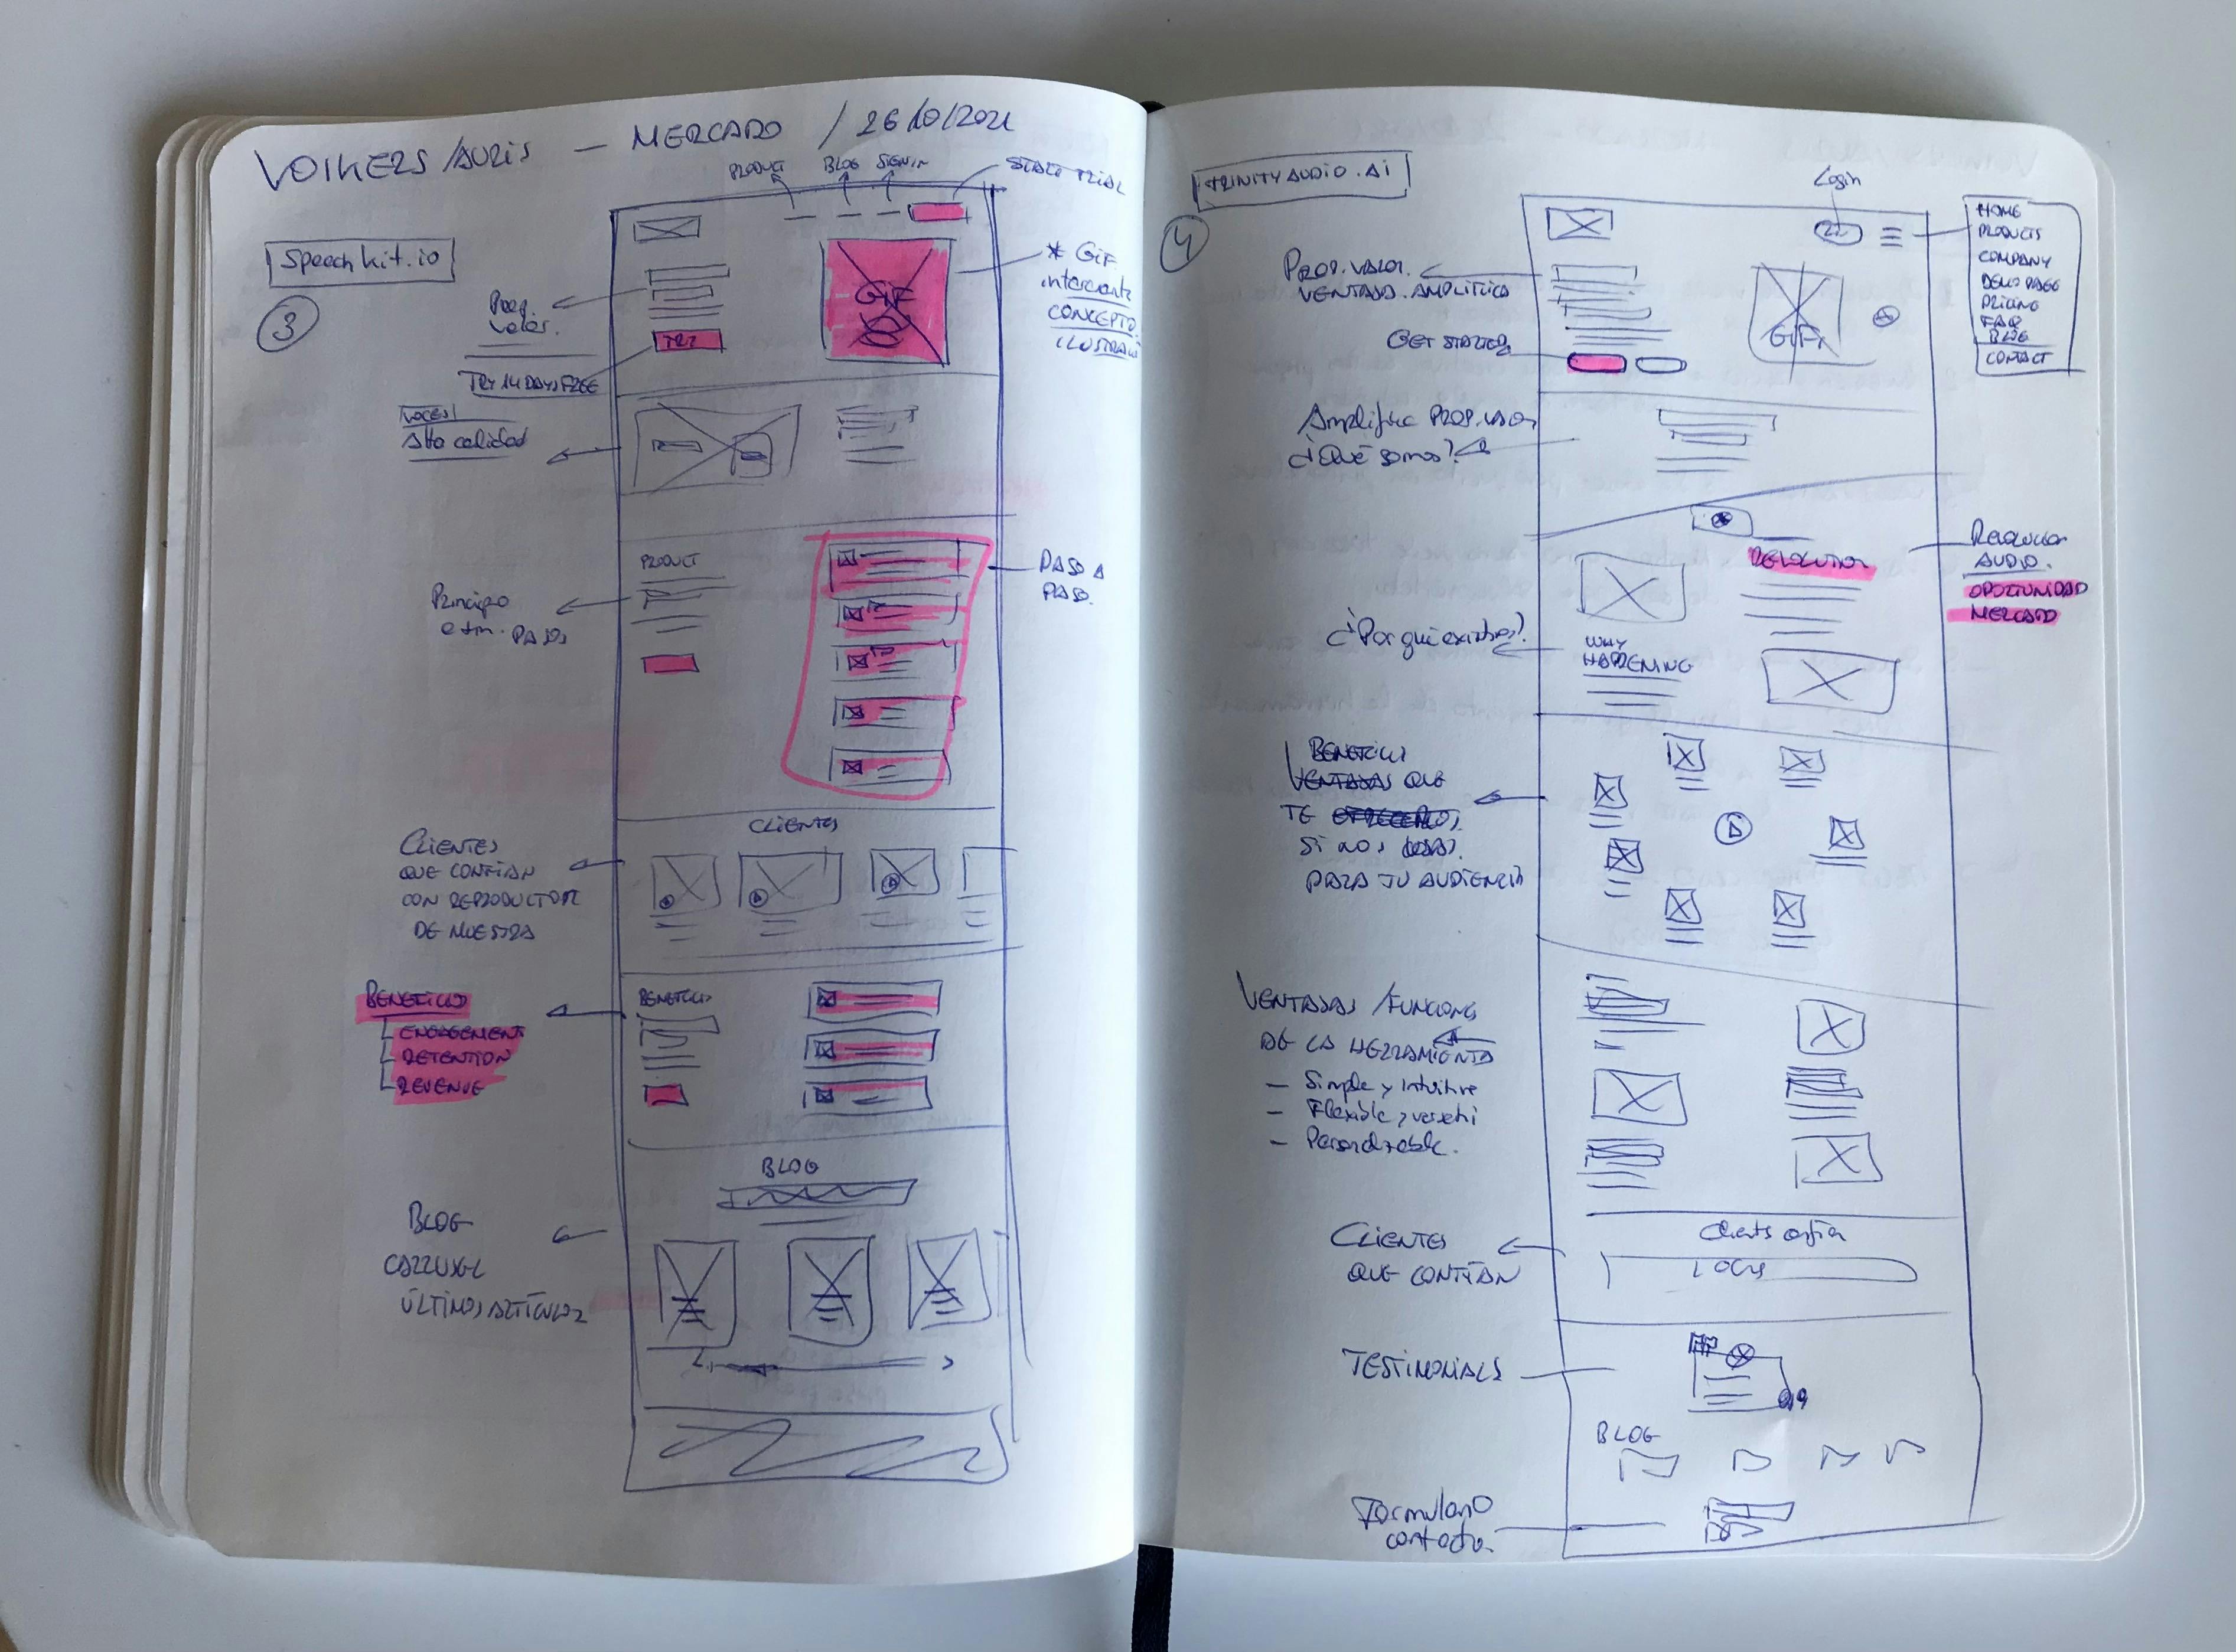 VOIKERS/AURIS — MERCADO / 26/10/2021
Speechkit.io
3
PRODUCT
BLOG
SIGN IN
START TRIAL
Prop.
valor.
TRY
TRY 14 DAYS FREE
GIF
* GIF
interesante
CONCEPTO
VOCES
Alta calidad
PRODUCT
Principio
PASOS
PASO A
PASO.
CLIENTES
CLIENTES
QUE CONFIAN
CON REPRODUCTOR
DE MUESTRA
BENEFICIOS
ENGAGEMENT
RETENTION
REVENUE
BENEFICIOS
BLOG
BLOG
CARRUSEL
ÚLTIMOS ARTÍCULOS
TRINITYAUDIO.AI
4
Login
HOME
PRODUCTS
COMPANY
DEMO PAGE
PRICING
FAQ
BLOG
CONTACT
PROP. VALOR.
GET STARTED
GIF
Amplifica PROP. VALOR
¿Qué somos?
REVOLUTION
REVOLUCION
AUDIO.
OPORTUNIDAD
MERCADO
¿Por qué existimos?
WHY
HAPPENING
BENEFICIOS
VENTAJAS QUE
TE
SI NOS USAS.
PARA TU AUDIENCIA
VENTAJAS / FUNCIONS
DE LA HERRAMIENTA
— Simple y Intuitive
— Flexible y versatil
— Personalizable.
CLIENTES
QUE CONFÍAN
Clients confían
LOGOS
TESTIMONIALS
BLOG
Formulario
contacto.